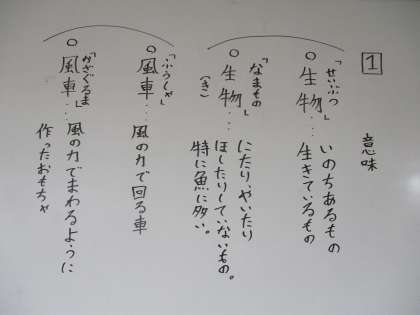 1
意味
「せいぶつ」
○生物…いのちあるもの
生きているもの
「なまもの」
○生物…にたり、やいたり
(き)
ほしたりしていないもの。
特に魚に多い。
「ふうしゃ」
○風車…風の力で回る車
「かざぐるま」
○風車…風の力でまわるように
作ったおもちゃ